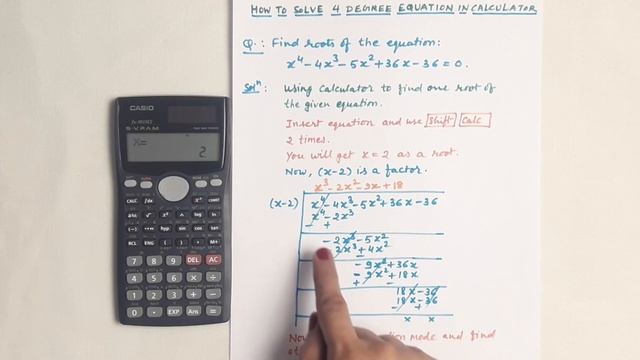 HOW TO SOLVE 4 DEGREE EQUATION IN CALCULATOR
Q.: Find roots of the equation:
x⁴-4x³-5x²+36x-36=0.
Solⁿ: Using calculator to find one root of
the given equation.
Insert equation and use Shift Calc
2 times.
You will get x=2 as a root.
Now, (x-2) is a factor.
x³-2x²-9x+18
(x-2) x⁴-4x³-5x²+36x-36
x⁴-2x³
- +
-2x³-5x²
2x³+4x²
-
-9x²+36x
-9x²+18x
+ -
18x-36
18x-36
- +
x x
Now mode and find
CASIO
S-V.P.A.M.
X=
2
CALC
7 8 9 DEL AC
4 5 6 × ÷
1 2 3 + -
0 . EXP Ans =